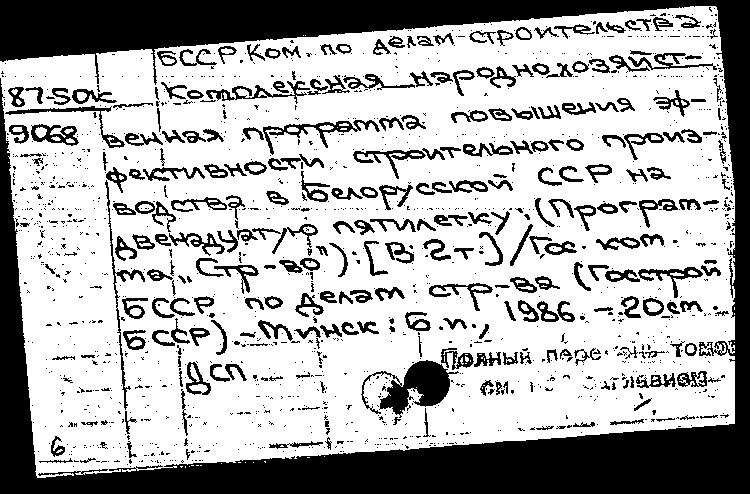 БССР. Ком. по делам строительства
87-50к
Комплексная народнохозяйст-
9068
венная программа повышения эф-
фективности строительного произ-
водства в Белорусской ССР на
двенадцатую пятилетку: (Програм-
ма „Стр-во"): [В 2 т.] / Гос. ком.
БССР по делам стр-ва (Госстрой
БССР). - Минск: Б.и., 1986. - 20см.
ДСП.
Полный перечень томов
см. заглавием
6